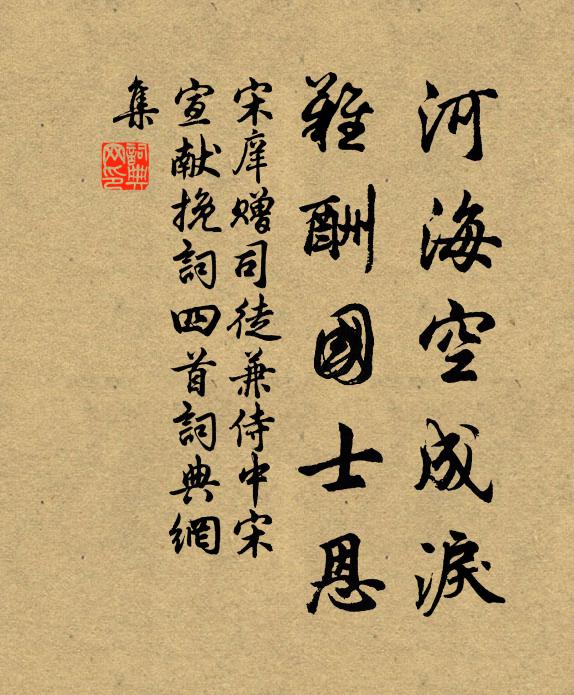 河海空成淚
難酬國士恩
宋庠贈司徒兼侍中宋
宣献挽詞四首詞典網
集
詞典
网印